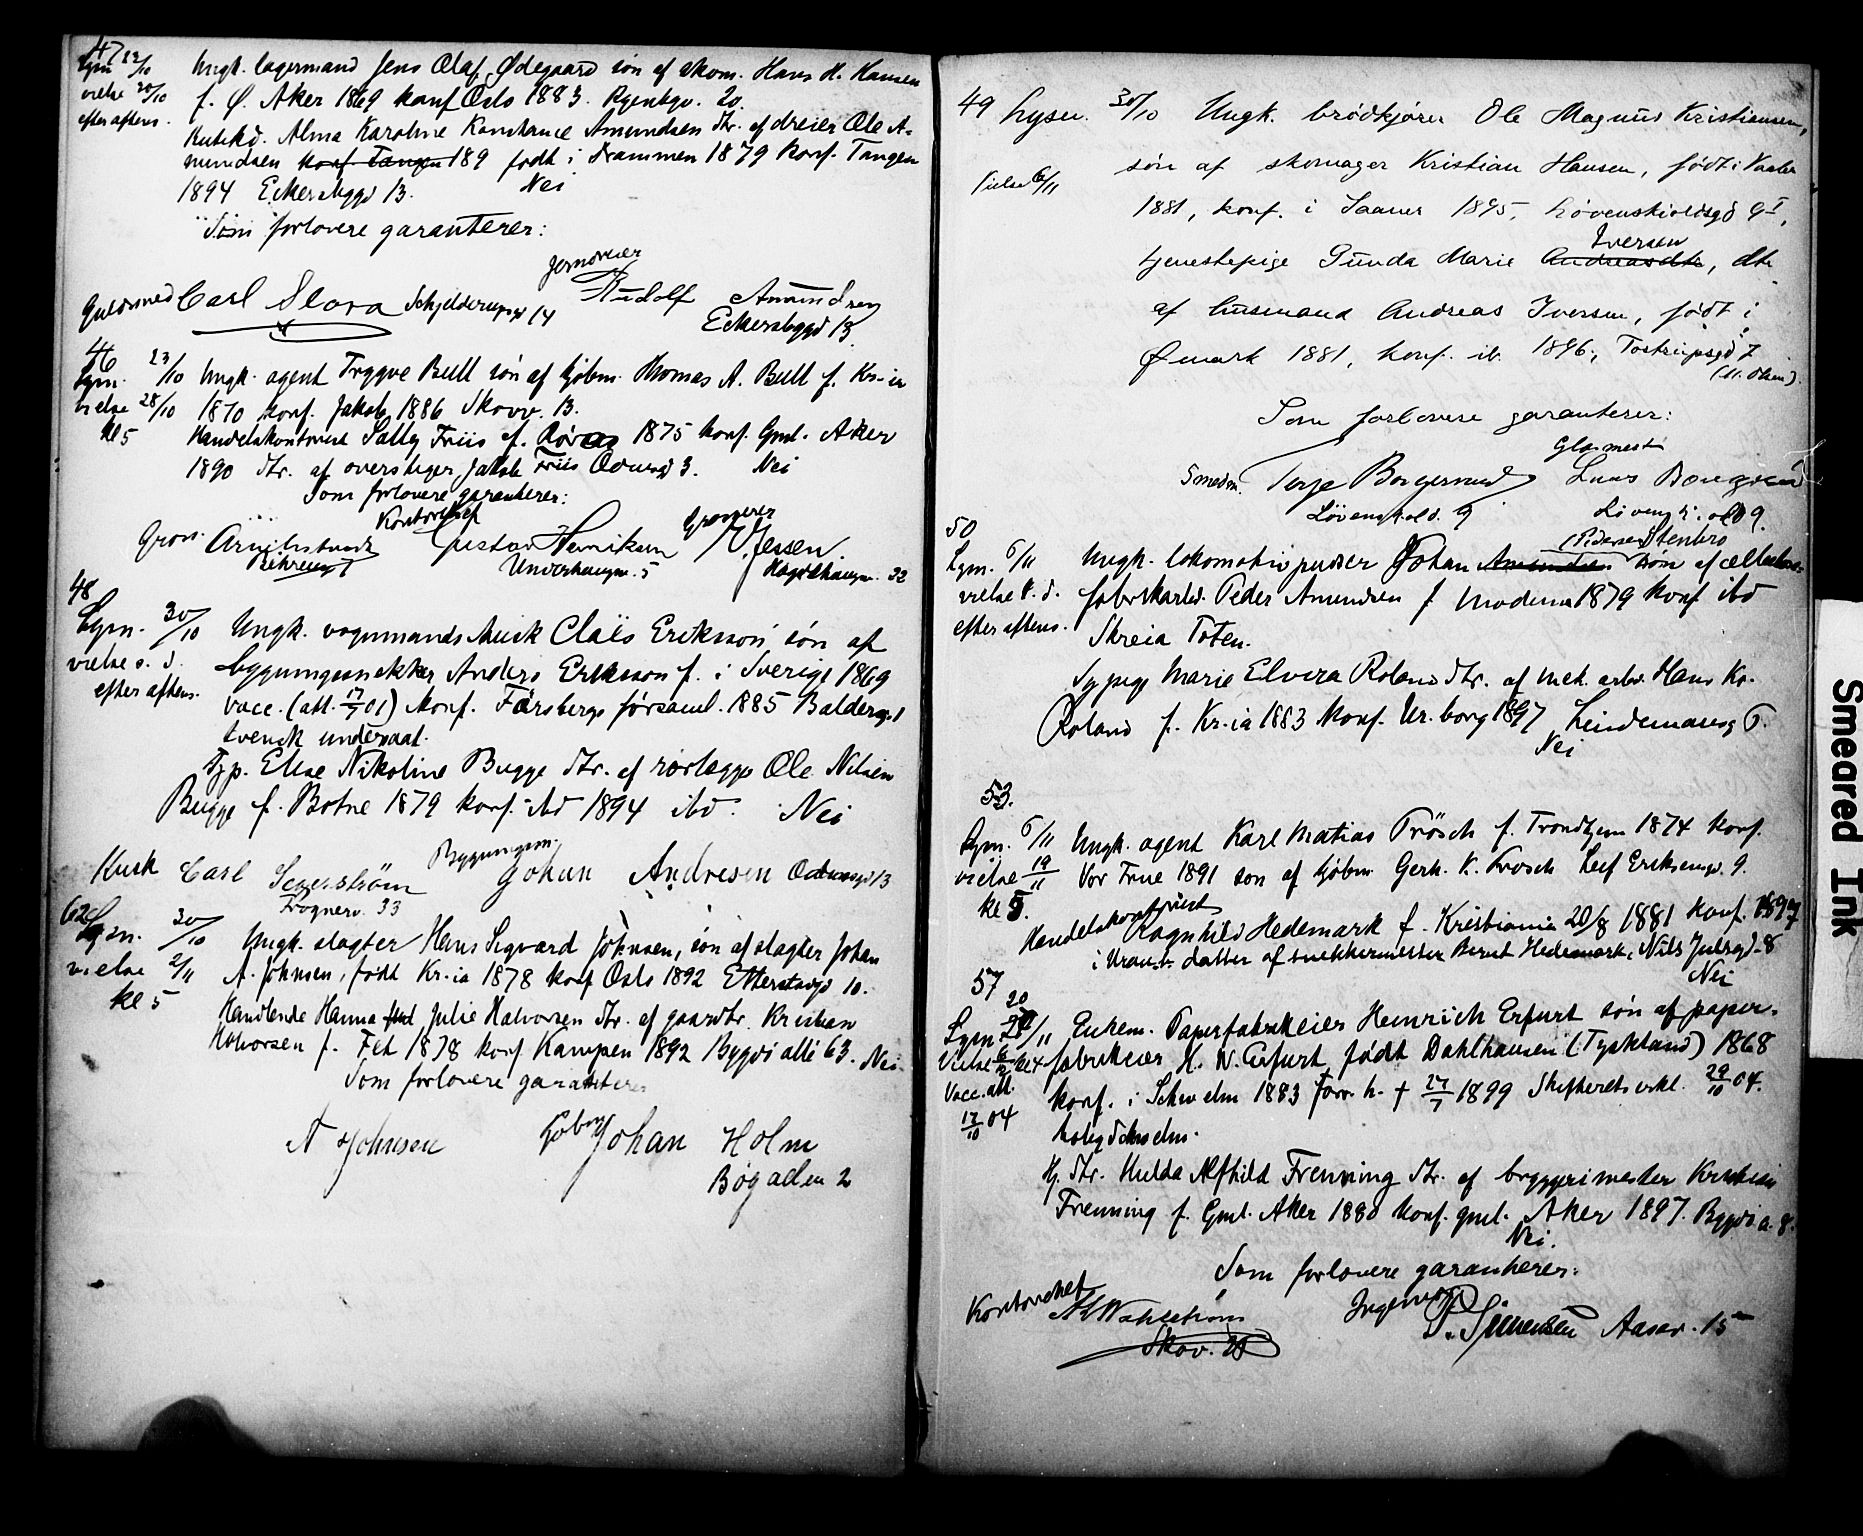 47
Lysn 23/10 Ungk. lagermand Jens Olaf Ødegaard søn af skom. Hans H. Hansen
vielse 30/10 f. Ø. Aker 1869 konf Oslo 1883. Rgenbgv. 20.
efter aftens. Butikd. Alma Karoline Konstance Amundsen dtr. af dreier Ole A-
mundsen konf Tangen 189 født i Drammen 1879 konf. Tangen
1894 Eckersbggd 13. Nei
Som forlovere garanterer:
Guldsmed Carl Slora Schjelderupsgd 14 Jerndreier Rudolf Amundsen
Eckersbggd 13
46
Lysn. 23/10 Ungk. agent Tryggve Bull søn af kjøbm. Thomas A. Bull f. Kr-ia
vielse 28/10 1870 konf. Jakob 1886 Skovv. 13.
kl 5 Handelskontorist Sally Friis f. Røros 1875 konf. Gml. Aker
1890 dtr. af overstiger Jakob Friis Odinsgd 3. Nei
Som forlovere garanterer:
Gross. Kontorchef Gustav Henriksen Grosserer Jessen.
Underhaugsv. 5 Hægdehaugsv. 32
48
Lysn. 30/10 Ungk. vognmandskusk Claës Eriksson søn af
vielse s. d. bygningssnekker Anders Eriksson f. i Sverige 1869
efter aftens. vacc. (att. 17/7 01) konf. Färsbergs församl. 1885 Baldersgd 1
svensk undersaat.
Syp. Elise Nikoline Bugge dtr. af rørlægger Ole Nilsen
Bugge f. Botne 1879 konf. ibd 1894 ibd. Nei
Kusk Carl Segerström Bygningssn. Johan Andresen Odinsgd 13
Frognerv. 33
62
Lysn. 30/10 Ungk. slagter Hans Sigvard Johnsen, søn af slagter Johan
vielse 2/11 A. Johnsen, født Kr.ia 1878 konf Oslo 1892 Etterstadgd 10.
kl 5 Handlende Hanna Julie Halvorsen dtr. af gaardbr. Kristian
Halvorsen f. Fet 1878 konf Kampen 1892 Bygdø allé 63. Nei.
Som forlovere garanterer
A Johnsen Johan Holm
Bøgaden 2
49 Lysn. 30/10 Ungk. brødkjører Ole Magnus Kristiansen,
Vielse 6/11 søn af skomager Kristian Hansen, født i Vaaler
1881, konf. i Saaner 1895, Løvenskioldsgd 9 I,
Iversen
tjenestepige Gunda Marie Andreasdtr, dtr
af husmand Andreas Iversen, født i
Ømark 1881, konf. ib. 1896, Tostrupsgd 7
Som forlovere garanterer:
Smedm. Terje Borgersrud Glasmest
Løvenskiold. 9
50
Pedersen Stenbro
Lysn. 6/11 Ungk. lokomotivpudser Johan Amundsen søn af
vielse s. d. fabrikarbd. Peder Amundsen f 1879 konf ibd
efter aftens. Skreia Toten.
Sypige Marie Elvira Roland dtr. af mek. arbd. Hans Kr.
Roland f. Kr.ia 1883 konf. Ur.borg 1897 Lindemansg
Nei
53.
Lysn. 6/11 Ungk. agent Karl Matias Trösch f. Trondhjem 1874 konf.
vielse 19/11 Vor Frue 1891 søn af kjøbm Gerh. K. Trosch Leif Eriksensgd. 9.
kl 5. Handelskontorist Ragnhild Hedemark f. Kristiania 20/8 1881 konf. 1897
i Uran.b. datter af snekkermester Bernt Hedemark, Nils Julsgd. 8
Nei
57
Lysn 20/11 Enkem. Paperfabrikeier Heinrich Erfurt søn af paper-
Vielse fabrikeier H. W. Erfurt, født Dahlhausen (Tyskland) 1868
Vacc. att. konf. i Schwelm 1883 Forr. h. † 27/7 1899 Skifteretserkl. 29/10 04.
17/10 04 bolig Schwelm.
Hj. dtr. Hulda Alfhild Frenning dtr. af bryggerimester Kristian
Frenning f. Gml. Aker 1880 konf. gml. Aker 1897. Bygdø a. 8.
Nei.
Som forlovere garanterer:
Kontorchef Wahlström Ingeniør Simensen Aasav. 15
Skov. 28
Smeared Ink